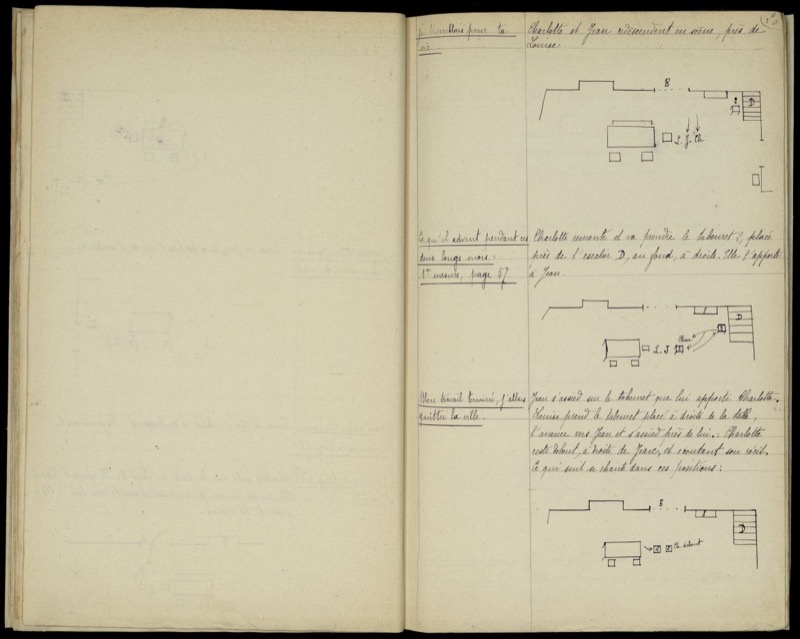 je tremblais pour ta
vie.
Charlotte et Jean redescendent en scène, près de
Louise.
8
D
L. J. Ch.
Ce qu'il advint pendant ces
deux longs mois =
1re mesure, page 57.
Charlotte remonte et va prendre le tabouret, placé
près de l'escalier D, au fond, à droite. Elle l'apporte
à Jean.
D
Char.
L. J
Mon travail terminé, j'allais
quitter la ville.
Jean s'assied sur le tabouret que lui apporte Charlotte.
Louise prend le tabouret placé à droite de la table,
l'avance vers Jean et s'assied près de lui. Charlotte
reste debout, à droite de Jean, et écoutant son récit.
Ce qui suit se chante dans ces positions :
D
Ch. debout